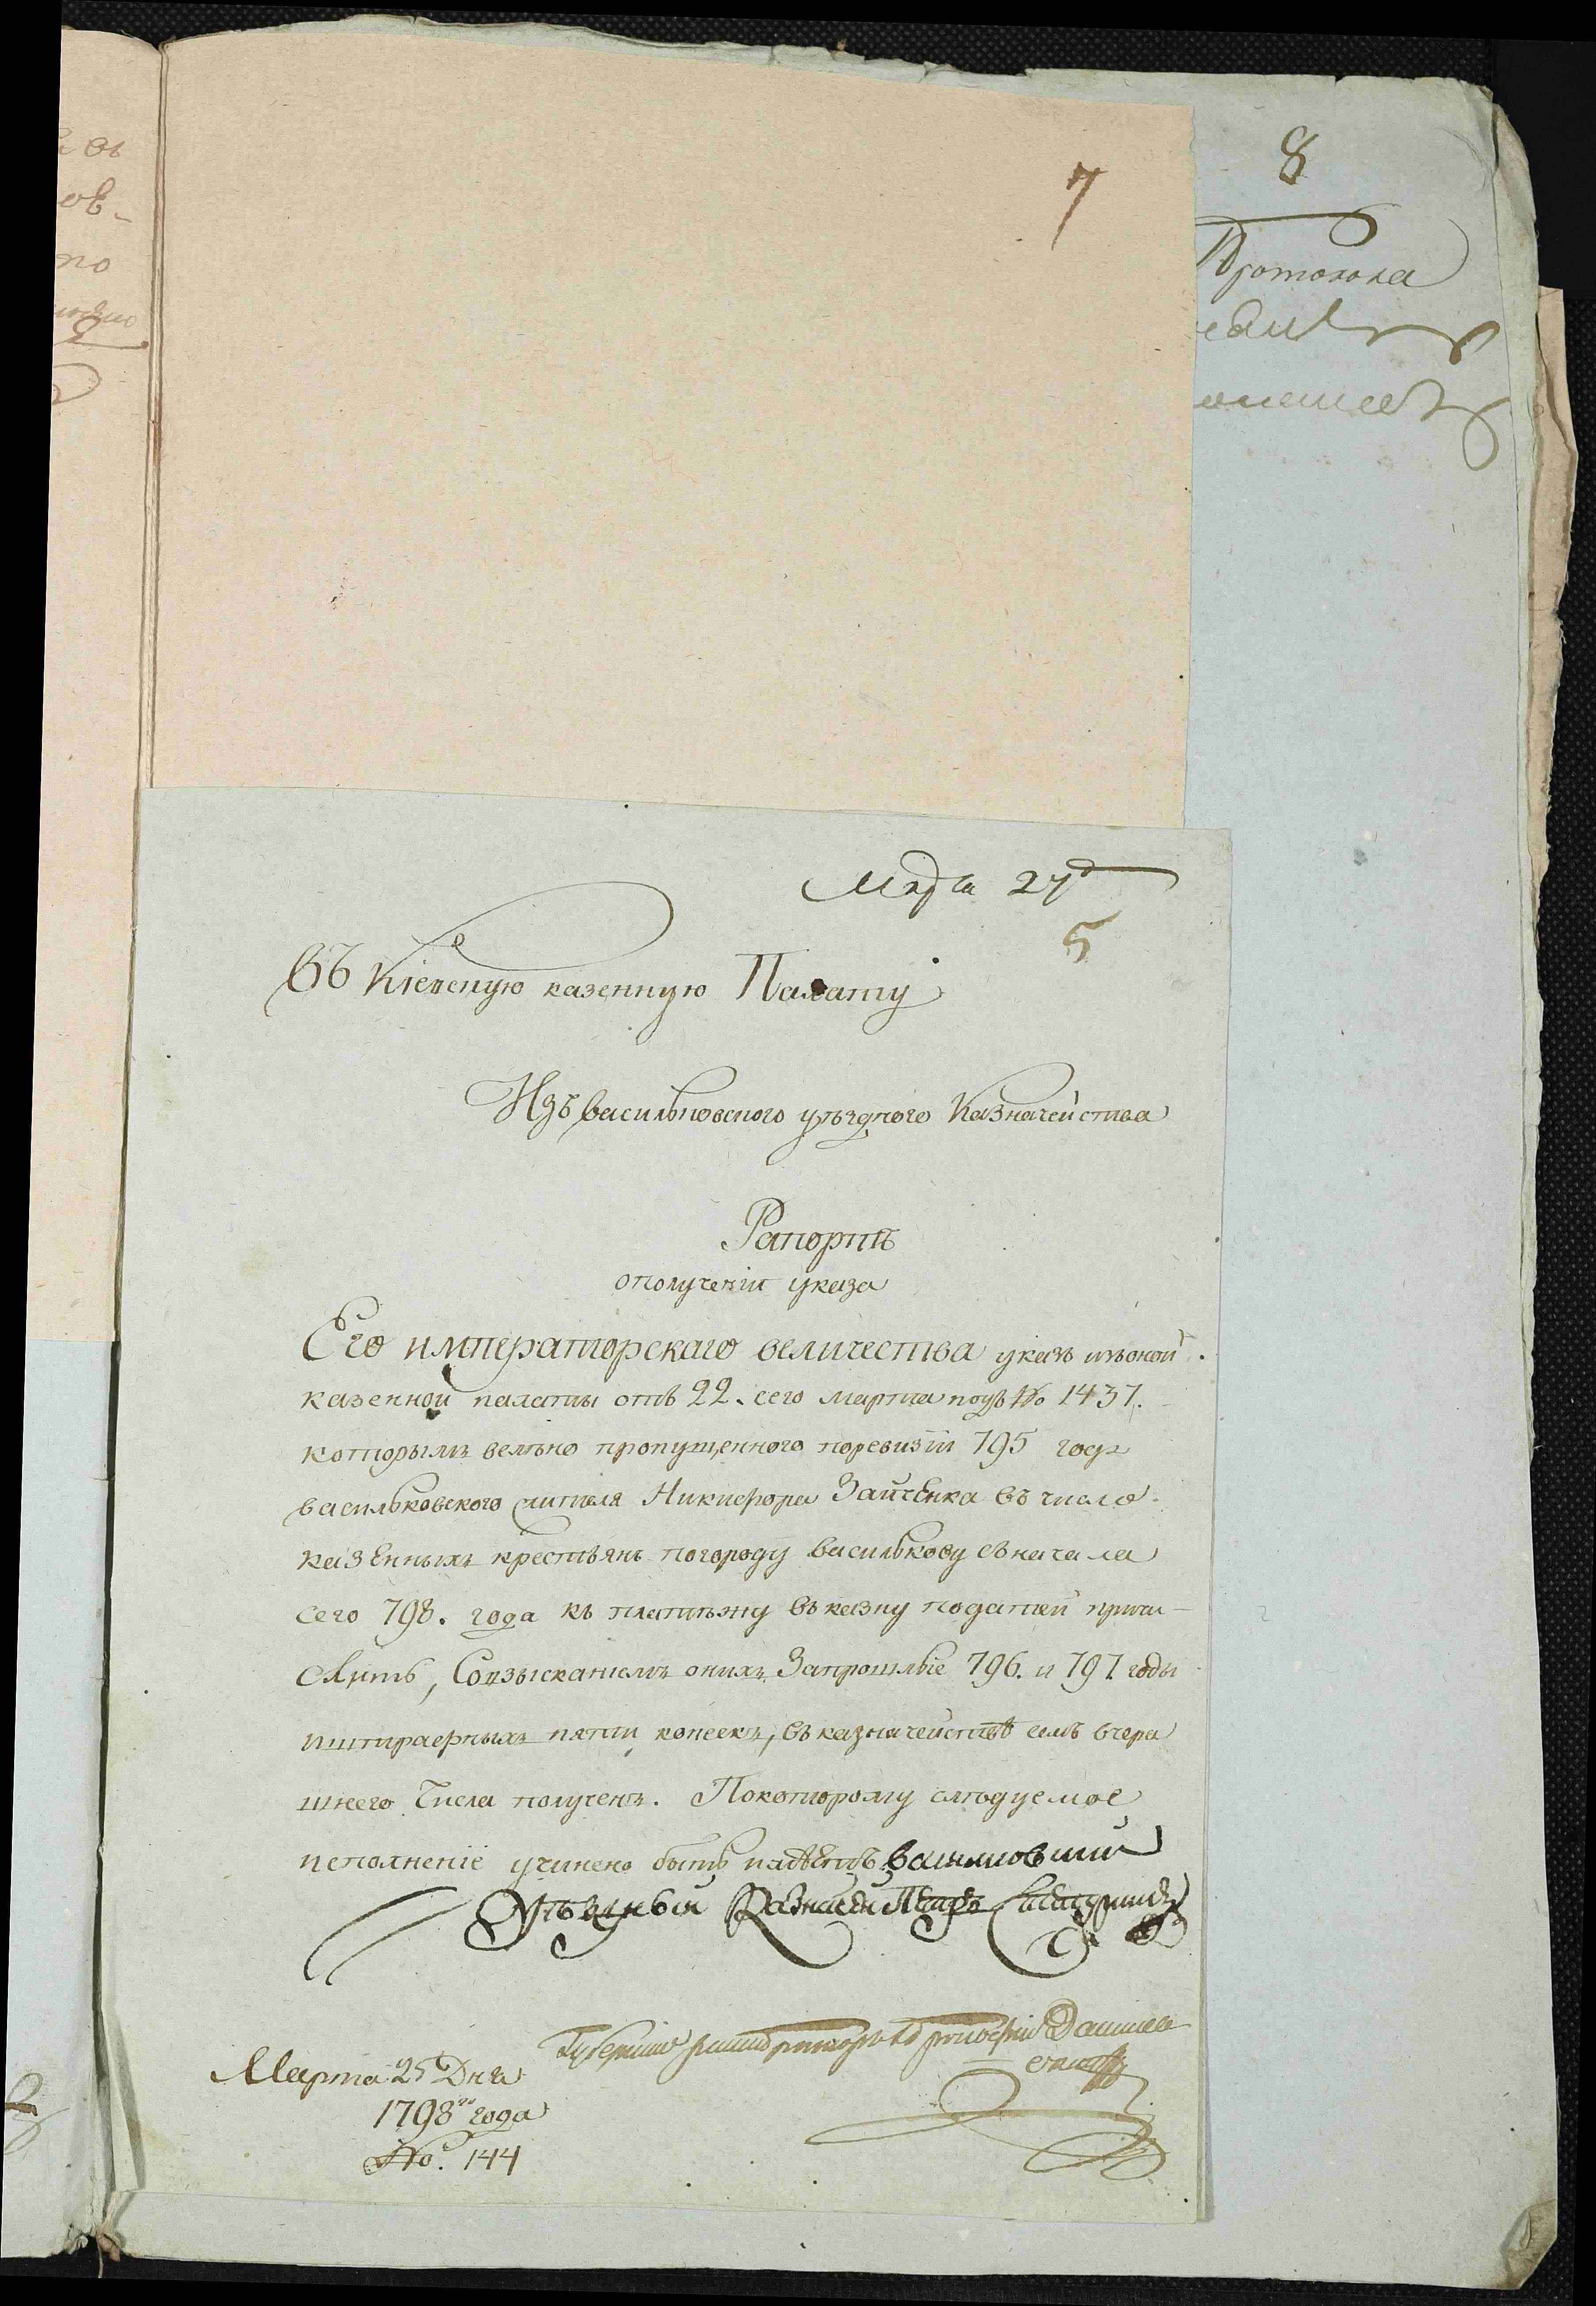 7
8
Протокола
по
Марта 27
5
Въ Кіевскую казенную Палату
Изъ васильковского уѣздного Казначейства
Рапортъ
ополученіи указа
Его императорскаго величества указъ изъоной
казенной палаты отъ 22. сего марта подъ No 1437.
которымъ велѣно пропущенного поревизіи 795 года
васильковского жителя Никифора Зайченка въ число
казенныхъ крестьянъ погороду василькову сначала
сего 798. года къ платежу въказну податей причи-
слить, Совзысканиемъ онихъ Запрошлые 796. и 797 годы
иштрафныхъ пяти копеекъ, въказначействѣ семъ вчера
шнего Числа полученъ. Покоторому слѣдуемое
исполненіе учинено быть имѣетъ васильковский
Уѣздный Казначей Петръ
Губернский регистраторъ
Марта 25 Дня
1798го года
No. 144